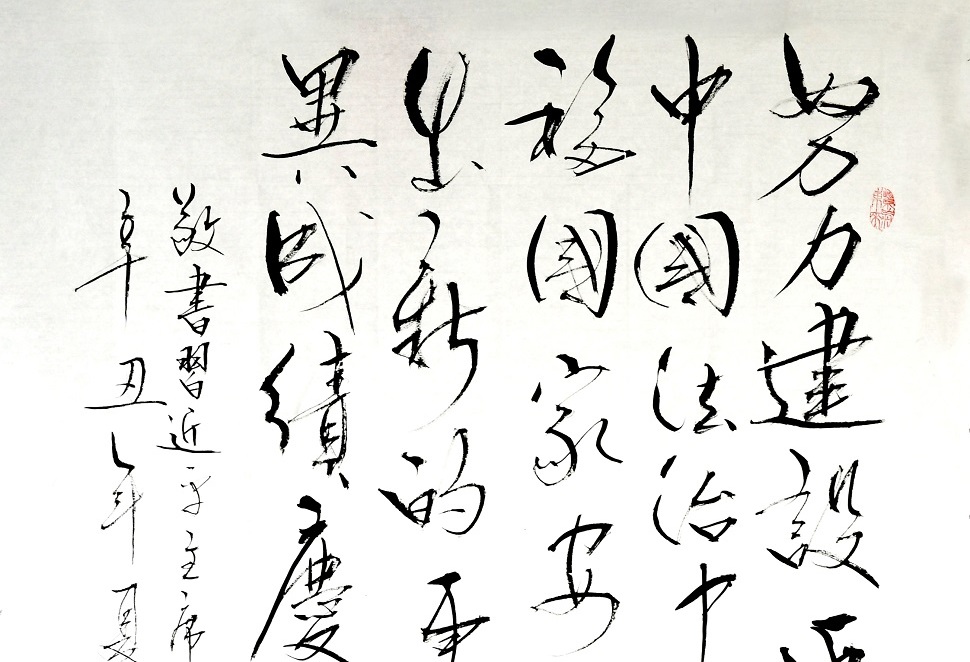 努力建設
中國法治中
護國家安
出新的更
異成績慶
敬書習近平主席
辛丑年夏